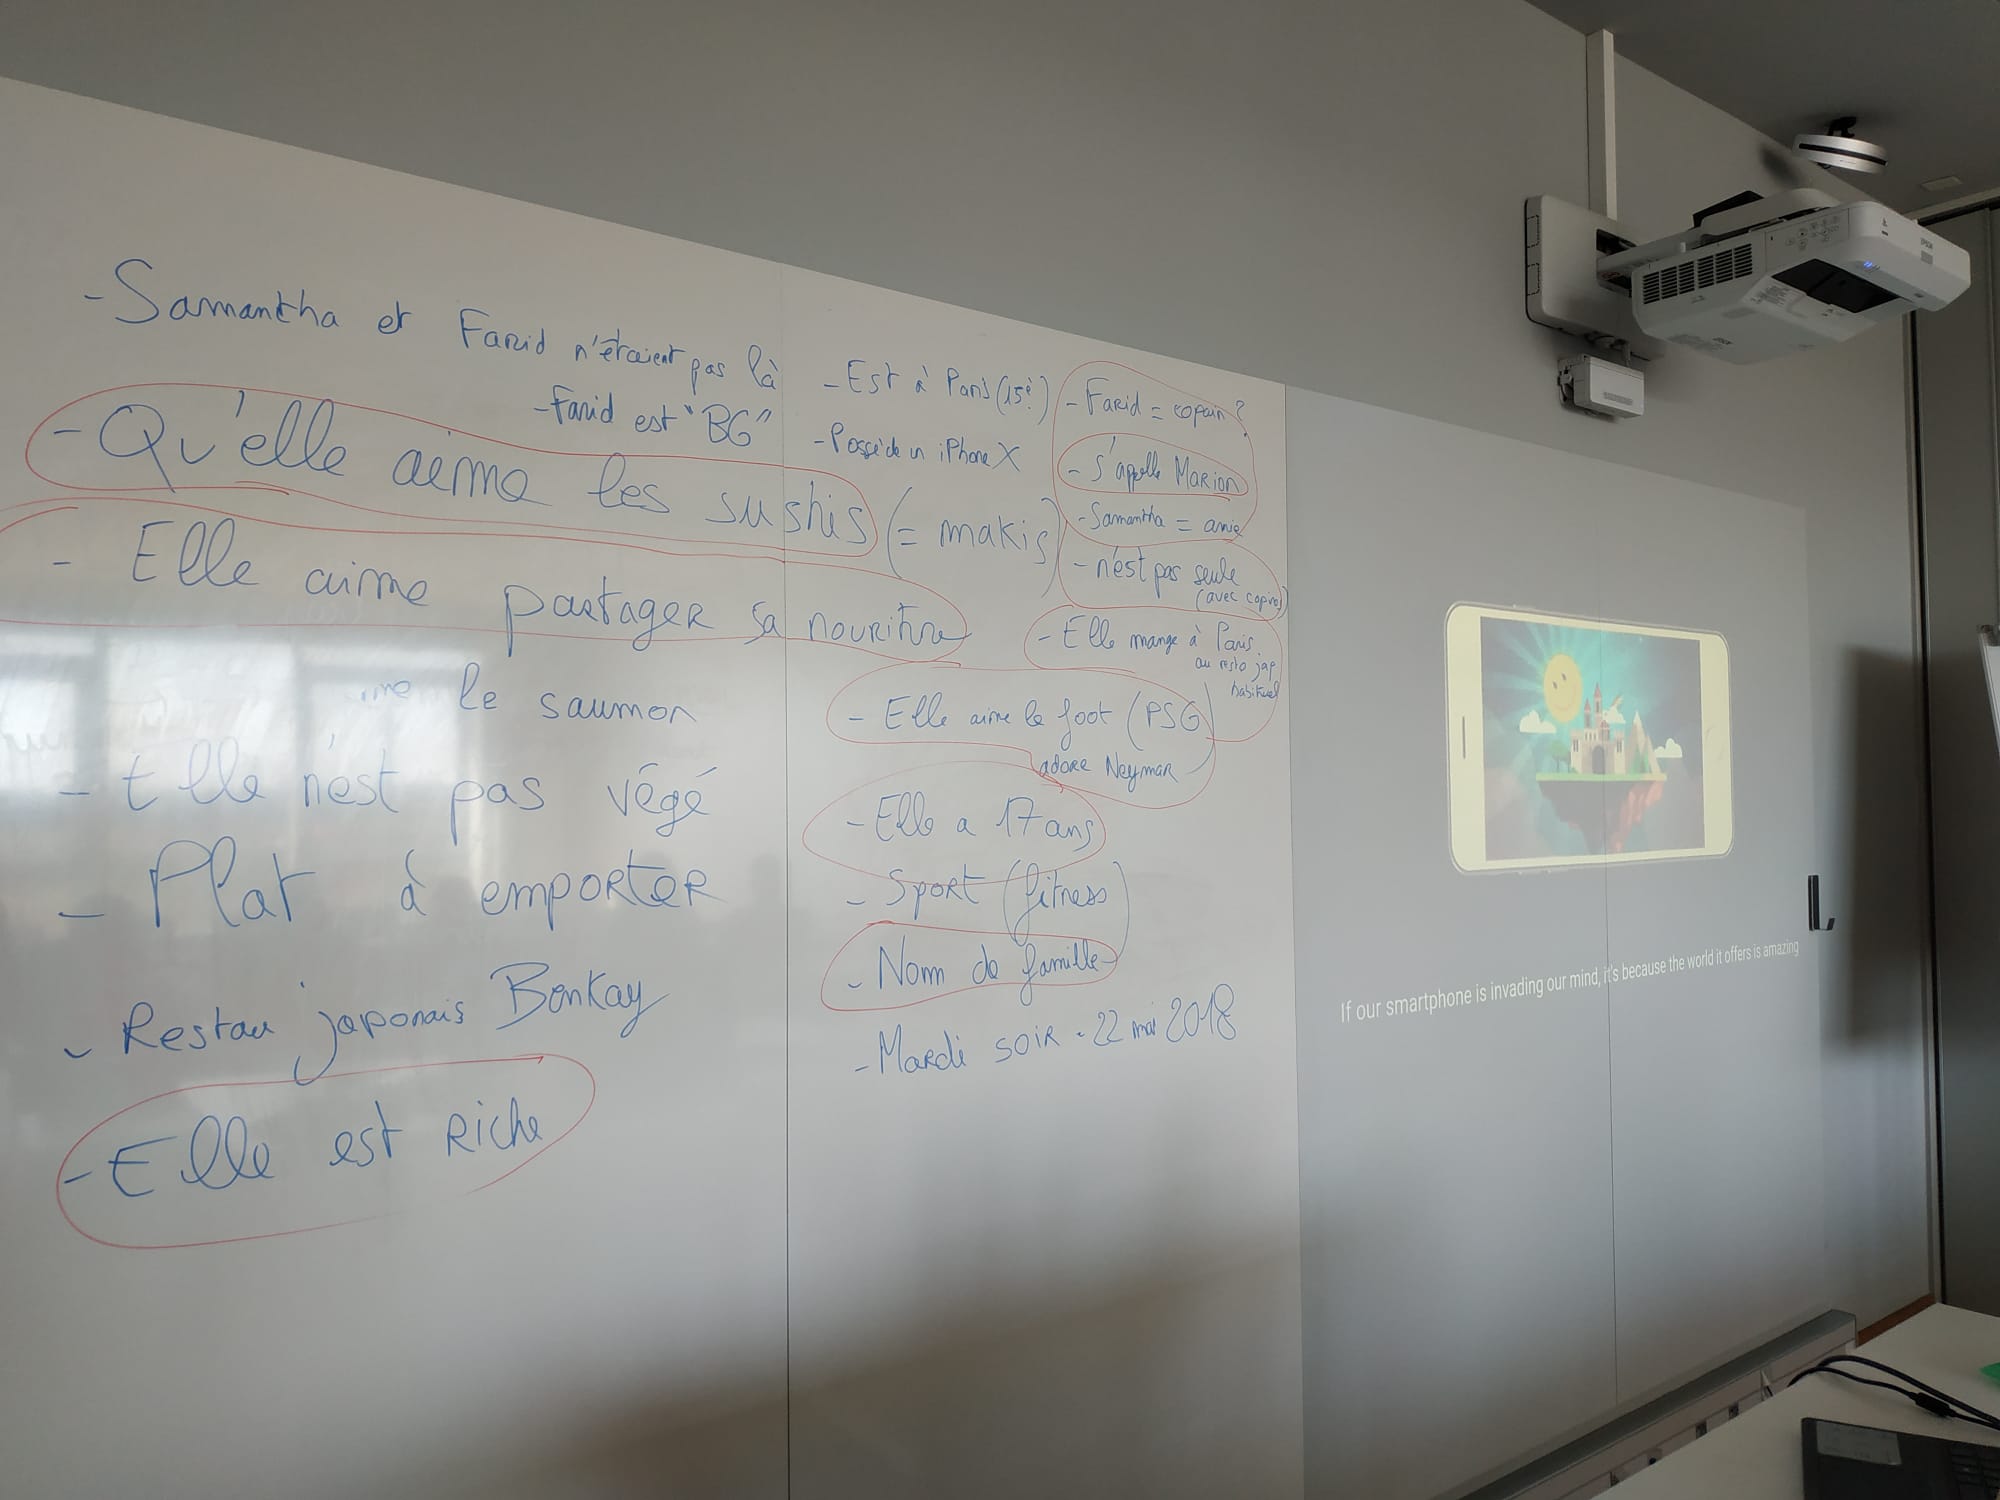 - Samantha et Farid n'étaient pas là
- Farid est "BG"
- Qu'elle aime les sushis (= makis)
- Elle aime partager sa nouriture
le saumon
- Elle n'est pas végé
- Plat à emporter
- Restau japonais Benkay
- Elle est Riche
- Est à Paris (15è)
- Possède un iPhone X
- Farid = copain ?
- s'appelle Marion
- Samantha = amie
- n'est pas seule
(avec copins)
- Elle mange à Paris
au resto jap
habituel
- Elle aime le foot (PSG)
adore Neymar
- Elle a 17 ans
- Sport (fitness)
- Nom de famille
- Mardi soir - 22 mai 2018
If our smartphone is invading our mind, it's because the world it offers is amazing
EPSON